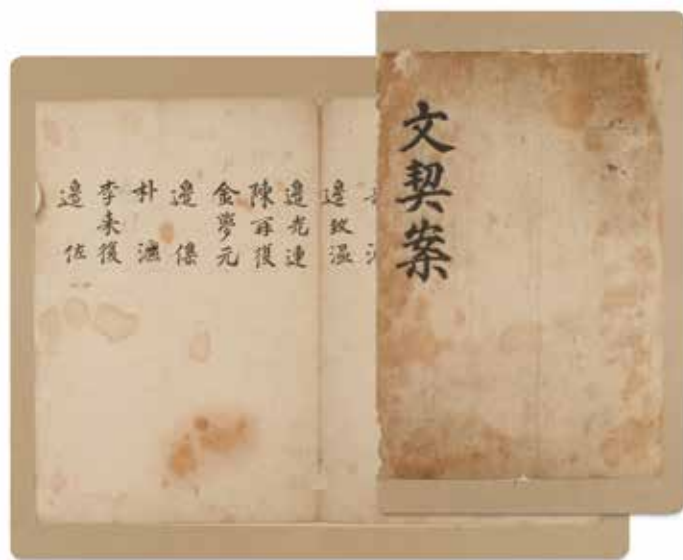 文契案
邊致温
邊光連
陳再復
金夢元
邊傑
朴
李來復
邊佐